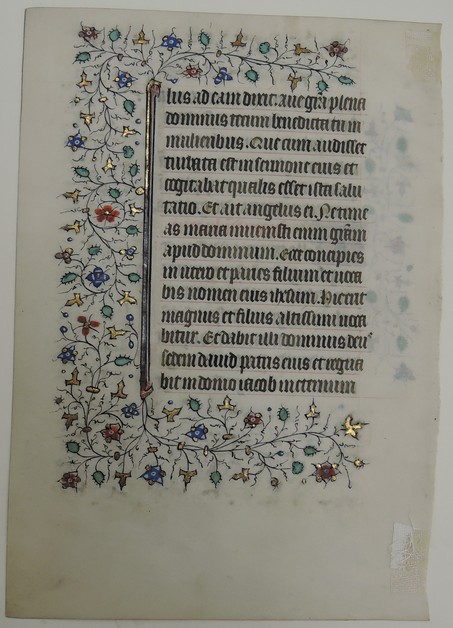 lus ad eam dixit. aue gr̃a plena
dominus tecum benedicta tu in
mulieribus. Que cum audisset
turbata est in sermone eius et
cogitabat qualis esset ista salu
tatio. Et ait angelus ei. Ne time
as maria inuenisti enim gr̃am
apud dominum. Ecce concipies
in utero et paries filium et uoca
bis nomen eius ihesum. Hic erit
magnus et filius altissimi uoca
bitur. Et dabit illi dominus deus
sedem dauid patris eius et regna
bit in domo iacob in eternum